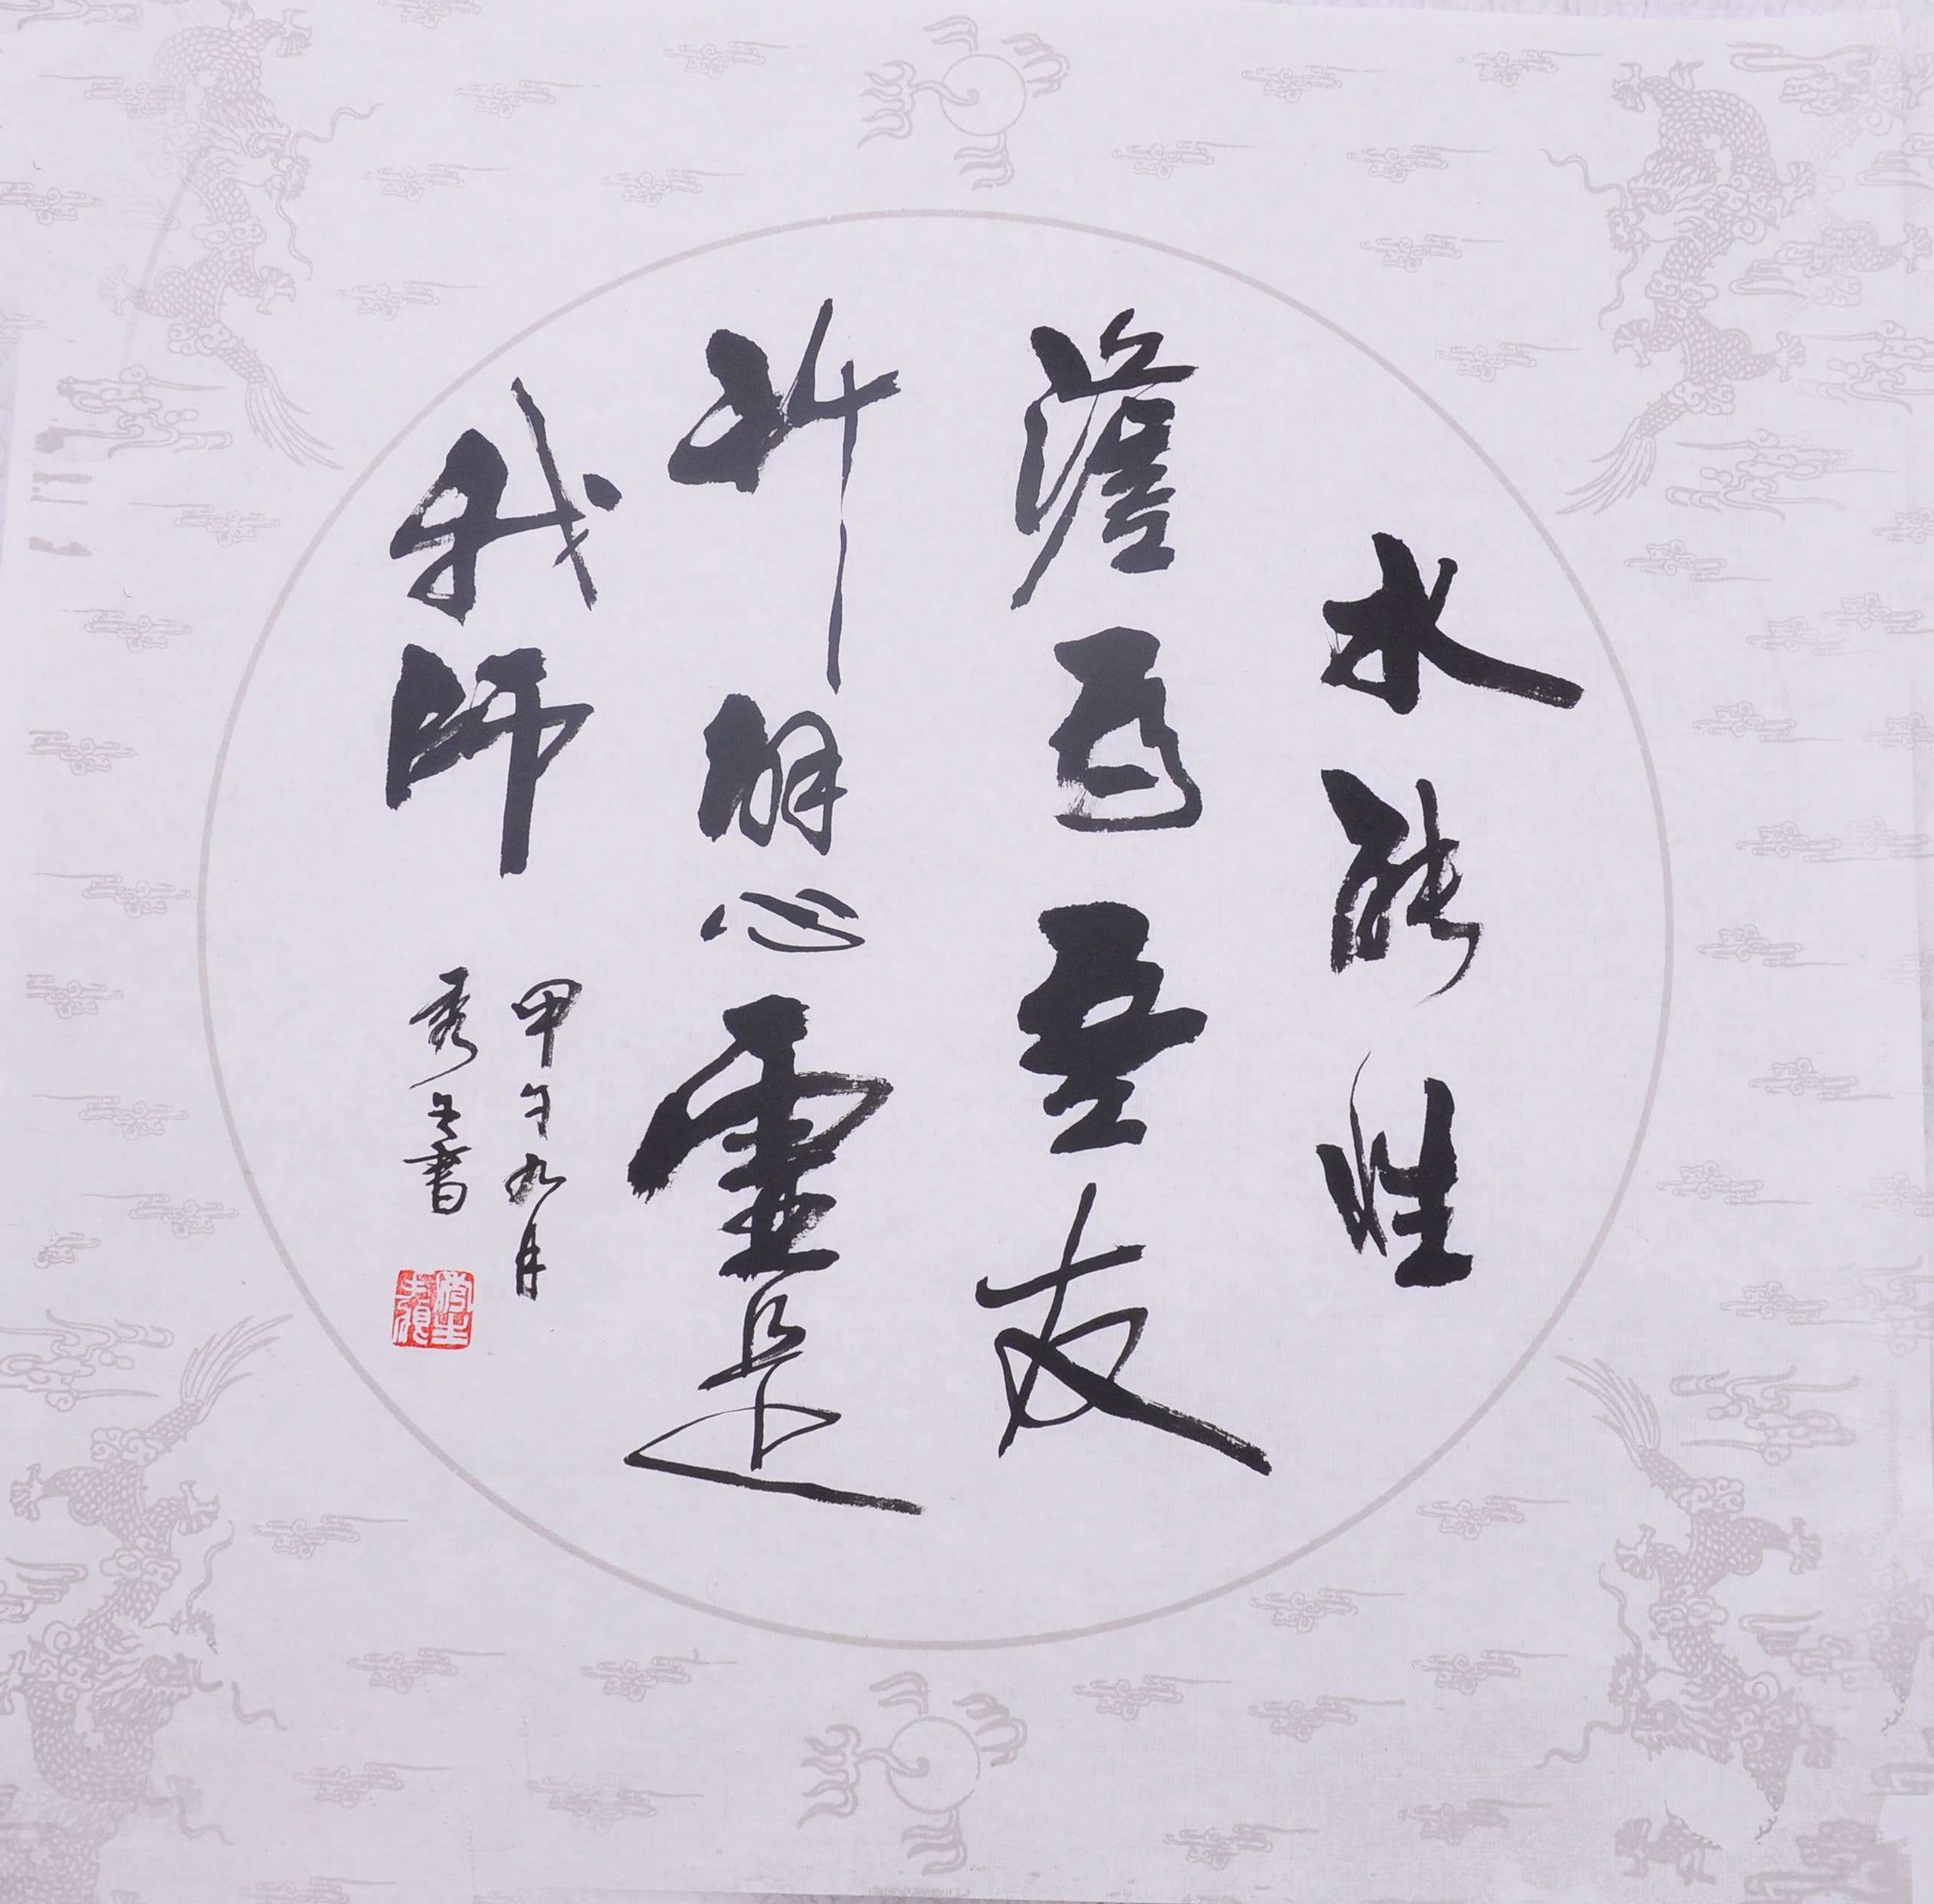 水能性
澹為吾友
竹解心虛是
我師
甲午九月
秀書